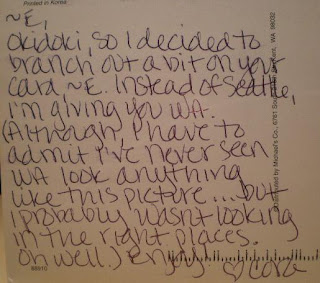 Posted in Korea
~E,
Okidoki, so I decided to
branch out a bit on your
card ~E. Instead of Seattle,
I'm giving you WA.
(Although, I have to
admit I've never seen
WA look anything
like this picture.... but
I probably wasn't looking
in the right places.
Oh well.) Enjoy! ♡ Cora
by Michael's Co., 6761 WA 98032